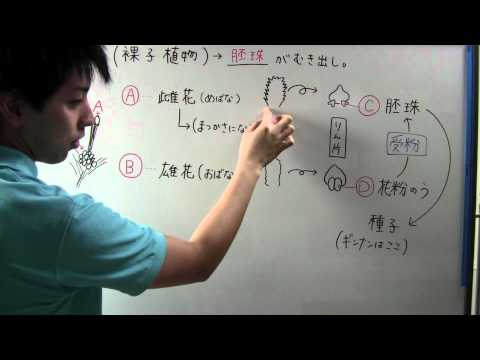 (裸子植物)→胚珠がむき出し。
A
A … 雌花(めばな)
(まつかさにな
B … 雄花(おばな
りん片
C 胚珠
受粉
D 花粉のう
種子
(ギンナンはここ)